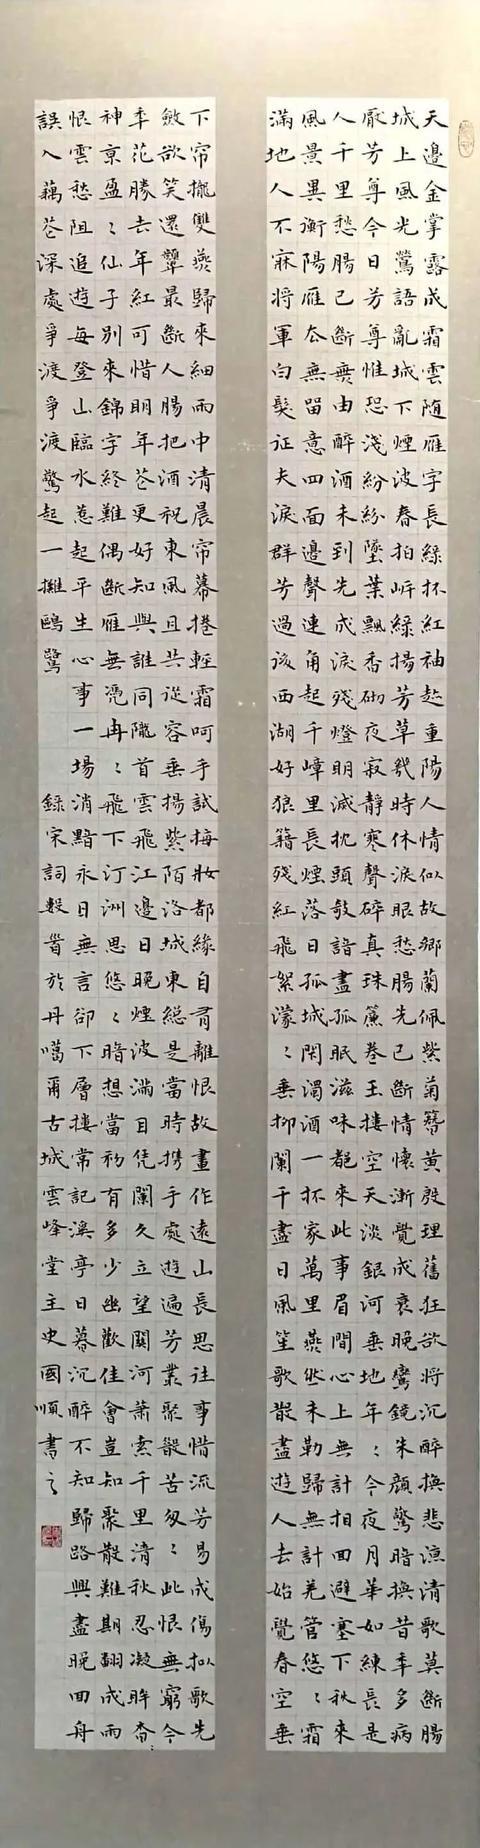 天邊金掌露成霜雲随雁字長綠杯紅袖趁重陽人情似故鄉蘭佩紫菊簪黄殷理舊狂欲将沉醉換悲涼清歌莫斷腸
城上風光鶯語亂城下煙波春拍岍綠揚芳草幾時休淚眼愁腸先已斷情懷漸覺成衰晚鸞鏡朱顏驚暗換昔年多病
厭芳尊今日芳尊惟恐淺紛紛墜葉飄香砌夜寂靜寒聲碎真珠簾卷玉樓空天淡銀河垂地年〻今夜月華如練長是
人千里愁腸已斷無由醉酒未到先成淚殘燈明滅枕頭敧諳盡孤眠滋味都來此事眉間心上無計相回避塞下秋來
風景異衡陽雁去無留意四面邊聲連角起千嶂里長煙落日孤城閉濁酒一杯家萬里燕然未勒歸無計羌管悠〻霜
滿地人不寐將軍白髮征夫淚群芳過後西湖好狼籍殘紅飛絮濛〻垂柳闌干盡日風笙歌散盡遊人去始覺春空垂
下帘櫳雙燕歸來細雨中清晨帘幕捲輕霜呵手試梅妝都緣自有離恨故畫作遠山長思往事惜流芳易成傷擬歌先
斂欲笑還顰最斷人腸把酒祝東風且共從容垂揚紫陌洛城東總是當時攜手處遊遍芳叢聚散苦匆〻此恨無窮今
年花勝去年紅可惜明年花更好知與誰同隴首雲飛江邊日晚煙波滿目凭闌久立望關河蕭索千里清秋忍凝眸杳〻
神京盈〻仙子別來錦字終難偶斷雁無憑冉〻飛下汀洲思悠〻暗想當初有多少幽歡佳會豈知聚散難期翻成雨
恨雲愁阻追遊每登山臨水惹起平生心事一場消黯永日無言卻下層樓常記溪亭日暮沉醉不知歸路興盡晚回舟
誤入藕花深處爭渡爭渡驚起一攤鷗鷺 錄宋詞數首於丹噶爾古城雲峰堂主史國順書之